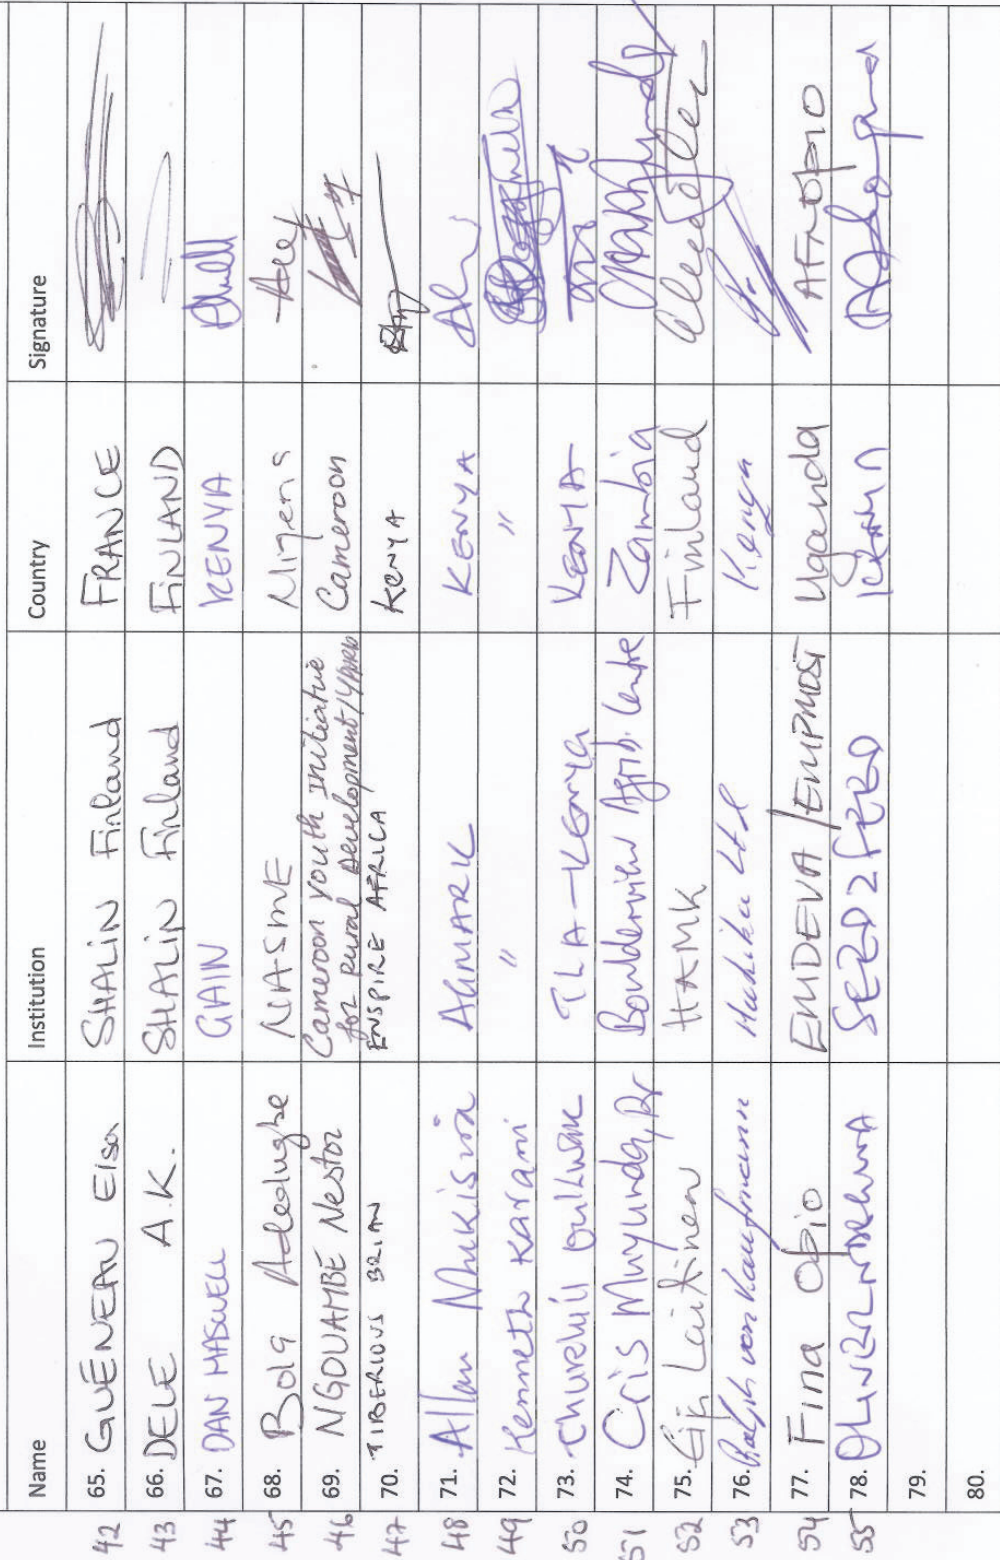 Name Institution Country Signature
42 65. GUÉNEAU Elsa SHALIN Finland FRANCE
43 66. DELE A.K. SHALIN Finland FINLAND
44 67. DAN MASWELL GAIN KENYA
45 68. Bola Adedugbe NASME
46 69. NGOUAMBE Nestor Cameroon youth initiative Cameroon
for rural development/
47 70. TIBERIOUS BRIAN ENSPIRE AFRICA KENYA
48 71. Allan Mukisira AGMARK KENYA
49 72. Kenneth Karani " "
50 73. Churchill TLA-KENYA KENYA
51 74. Cris Muyunda, Dr Agrib. Centre Zambia
52 75. Laitinen HAMK Finland
53 76. Ralph von Kaufmann Ltd Kenya
54 77. Fina Opio ENDEVA/EMPMOST Uganda AFNOpio
55 78. SEED2FEED
79.
80.